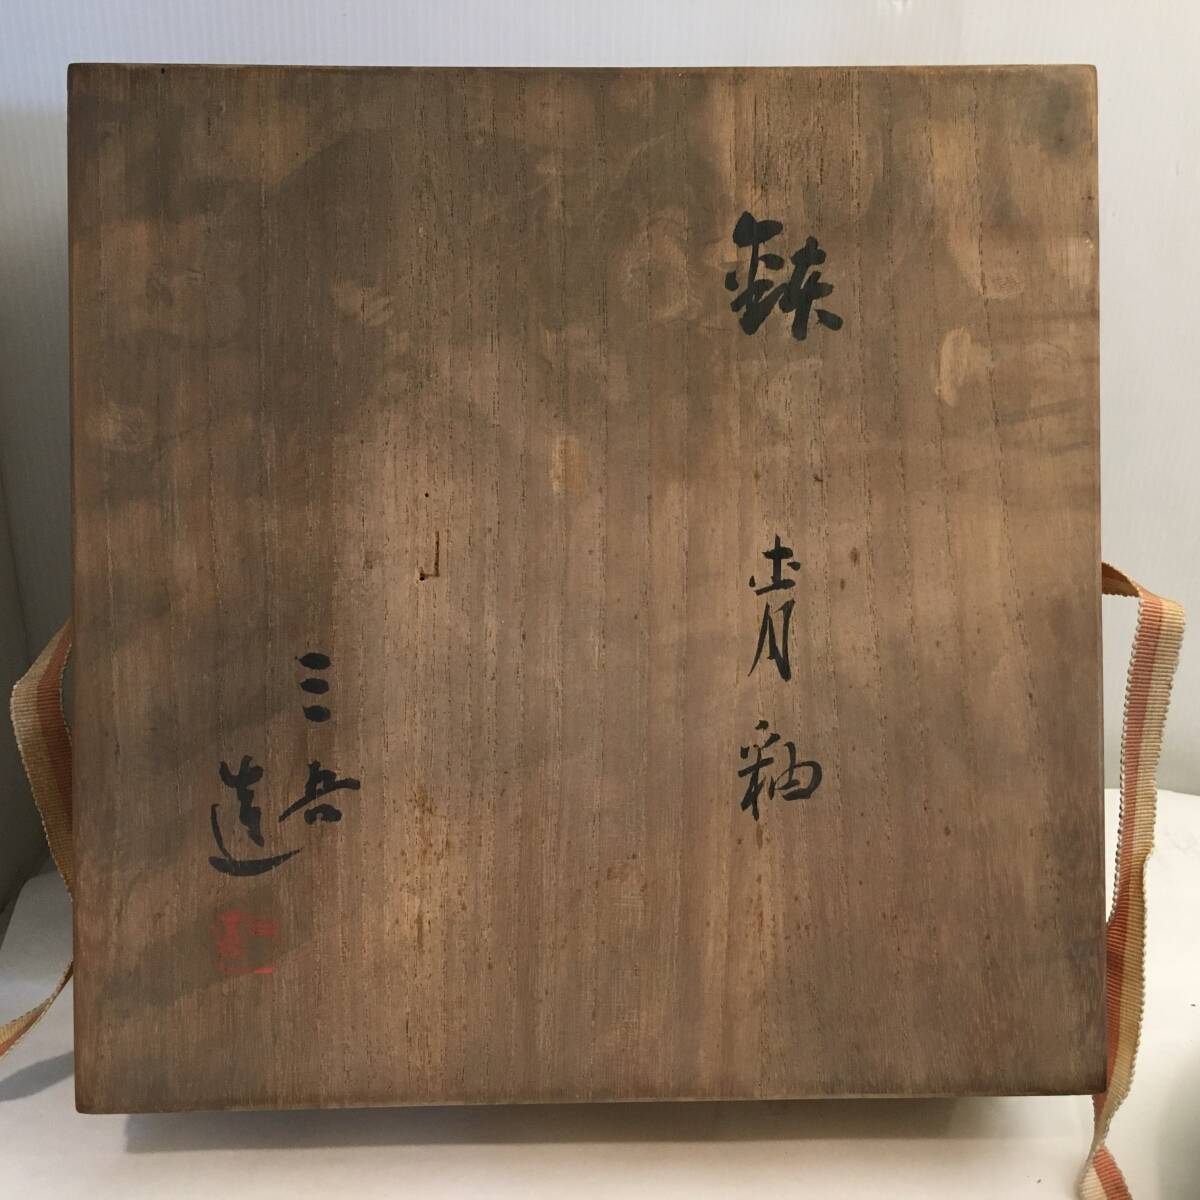 鉢
青釉
三吾
造